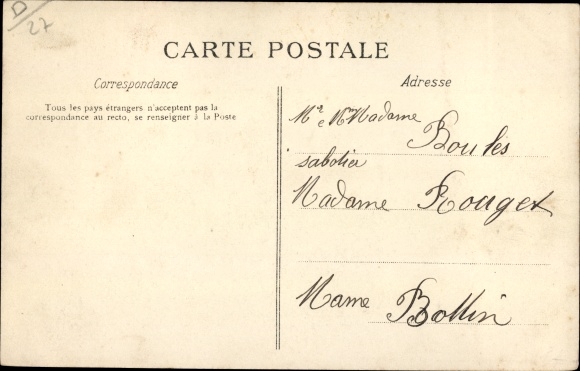 D
27
CARTE POSTALE
Correspondance
Tous les pays étrangers n'acceptent pas la
correspondance au recto, se renseigner à la Poste
Adresse
Mr e Madame
Boulés
sabotier
Madame Rouget
Mame Bollin